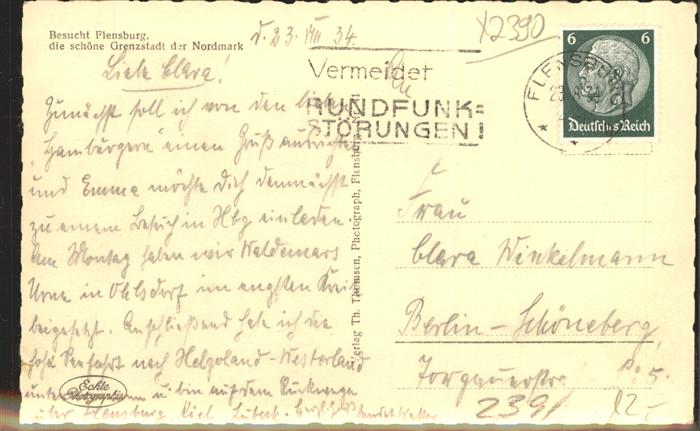 Besucht Flensburg,
die schöne Grenzstadt der Nordmark
d. 23. VIII 34.
X2390
Vermeidet
RUNDFUNK=
STÖRUNGEN!
FLENSBURG
6 6
Deutsches Reich
Liebe Clara!
Zunächst soll ich von den lieben
"Hamburgern" einen Gruß ausrichten
und Emma möchte Dich demnächst
zu einem Besuch in Hbg einladen.
Am Montag haben wir Waldemars
Urne in Ohlsdorf im engsten Kreis
beigesetzt. Anschließend habe ich die
Seefahrt nach Helgoland-Westerland
u. bin auf dem Rückwege
über Flensburg, Kiel, Lübeck.
Echte
Photographie
Verlag Th. Thomsen, Photograph, Flensburg.
Frau
Clara Winkelmann
Berlin-Schöneberg
Torgauerstr. 5.
2391
12,-